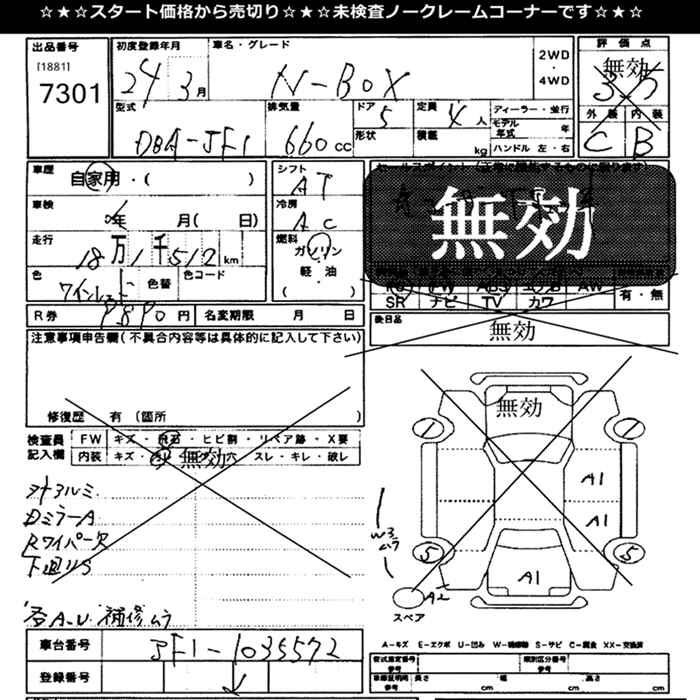 ☆★☆★スタート価格から売切り☆★☆★未検査ノークレームコーナーです☆★☆★
出品番号
[1881]
7301
初度登録年月
24 3月
車名・グレード
N-BOX
2WD
・
4WD
評価点
無効
3.5
外装 内装
C B
型式
DBA-JF1
排気量
660cc
ドア
5
形状
定員
4人
積載
kg
ディーラー・並行
モデル年式 年
ハンドル 左・右
車歴
自家用・( )
車検
年 月( 日)
走行
18万1千512km
色
ワインレッド
色替
色コード
シフト
AT
冷房
AC
燃料
ガソリン
軽・油
( )
無効
SR ナビ TV カワ
有・無
R券
円
名変期限 月 日
後日品
無効
注意事項申告欄(不具合内容等は具体的に記入して下さい)
修復歴 有(箇所 )
検査員記入欄
FW キズ・飛石・ヒビ割・リペア跡・X要
内装 キズ・ 穴 スレ・キレ・破レ
無効
無効
1 1
A1
A1
W3
ムラ
5 5
A1
スペア
社外アルミ
DミラーA
Rワイパー欠
下廻りS
各A.U.補修ムラ
車台番号
JF1-1035572
登録番号
A-キズ E-エクボ U-凹み W-補修跡 S-サビ C-腐食 XX-交換済
型式指定番号
参考
類別区分番号
参考
車検証明関
参考
長さ cm
幅 cm
高さ cm